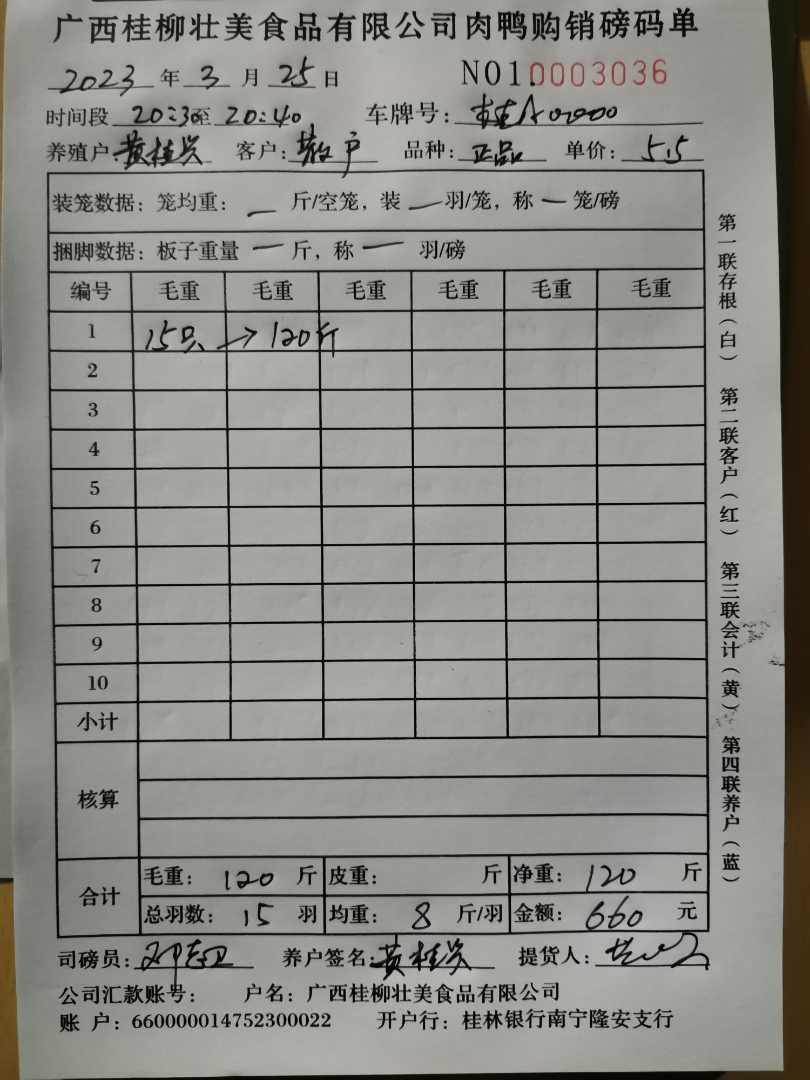 广西桂柳壮美食品有限公司肉鸭购销磅码单
2023 年 3 月 25 日 NO1.0003036
时间段 20:30至 20:40 车牌号: 桂A00000
养殖户: 黄桂兴 客户: 散户 品种: 正品 单价: 5.5
装笼数据: 笼均重: — 斤/空笼, 装 — 羽/笼, 称 — 笼/磅
捆脚数据: 板子重量 — 斤, 称 — 羽/磅
编号 毛重 毛重 毛重 毛重 毛重 毛重
1 15只 → 120斤
2
3
4
5
6
7
8
9
10
小计
核算
合计
毛重: 120 斤 皮重: 斤 净重: 120 斤
总羽数: 15 羽 均重: 8 斤/羽 金额: 660 元
司磅员: 养户签名: 黄桂兴 提货人:
公司汇款账号: 户名: 广西桂柳壮美食品有限公司
账 户: 660000014752300022 开户行: 桂林银行南宁隆安支行
第一联存根(白) 第二联客户(红) 第三联会计(黄) 第四联养户(蓝)